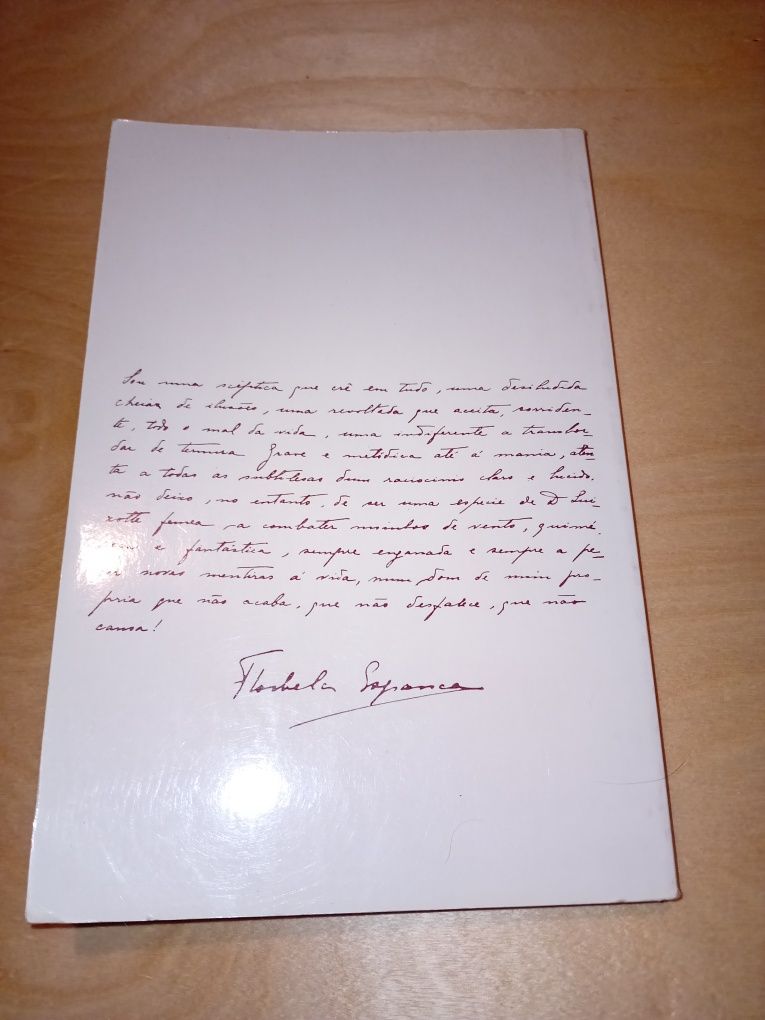 Sou uma scéptica que crê em tudo, uma desiludida
cheia de ilusões, uma revoltada que aceita, sorriden-
te, todo o mal da vida, uma indiferente a transbor-
dar de ternura. Grave e metódica até á mania, aten-
ta a todas as subtilesas dum raciocinio claro e lucido,
não deixo, no entanto, de ser uma especie de D. Qui-
xotte femea a combater moinhos de vento, quimé-
rica e fantástica, sempre enganada e sempre a pe-
dir novas mentiras á vida, num dom de mim pro-
pria que não acaba, que não desfalece, que não
cansa!
Florbela Espanca